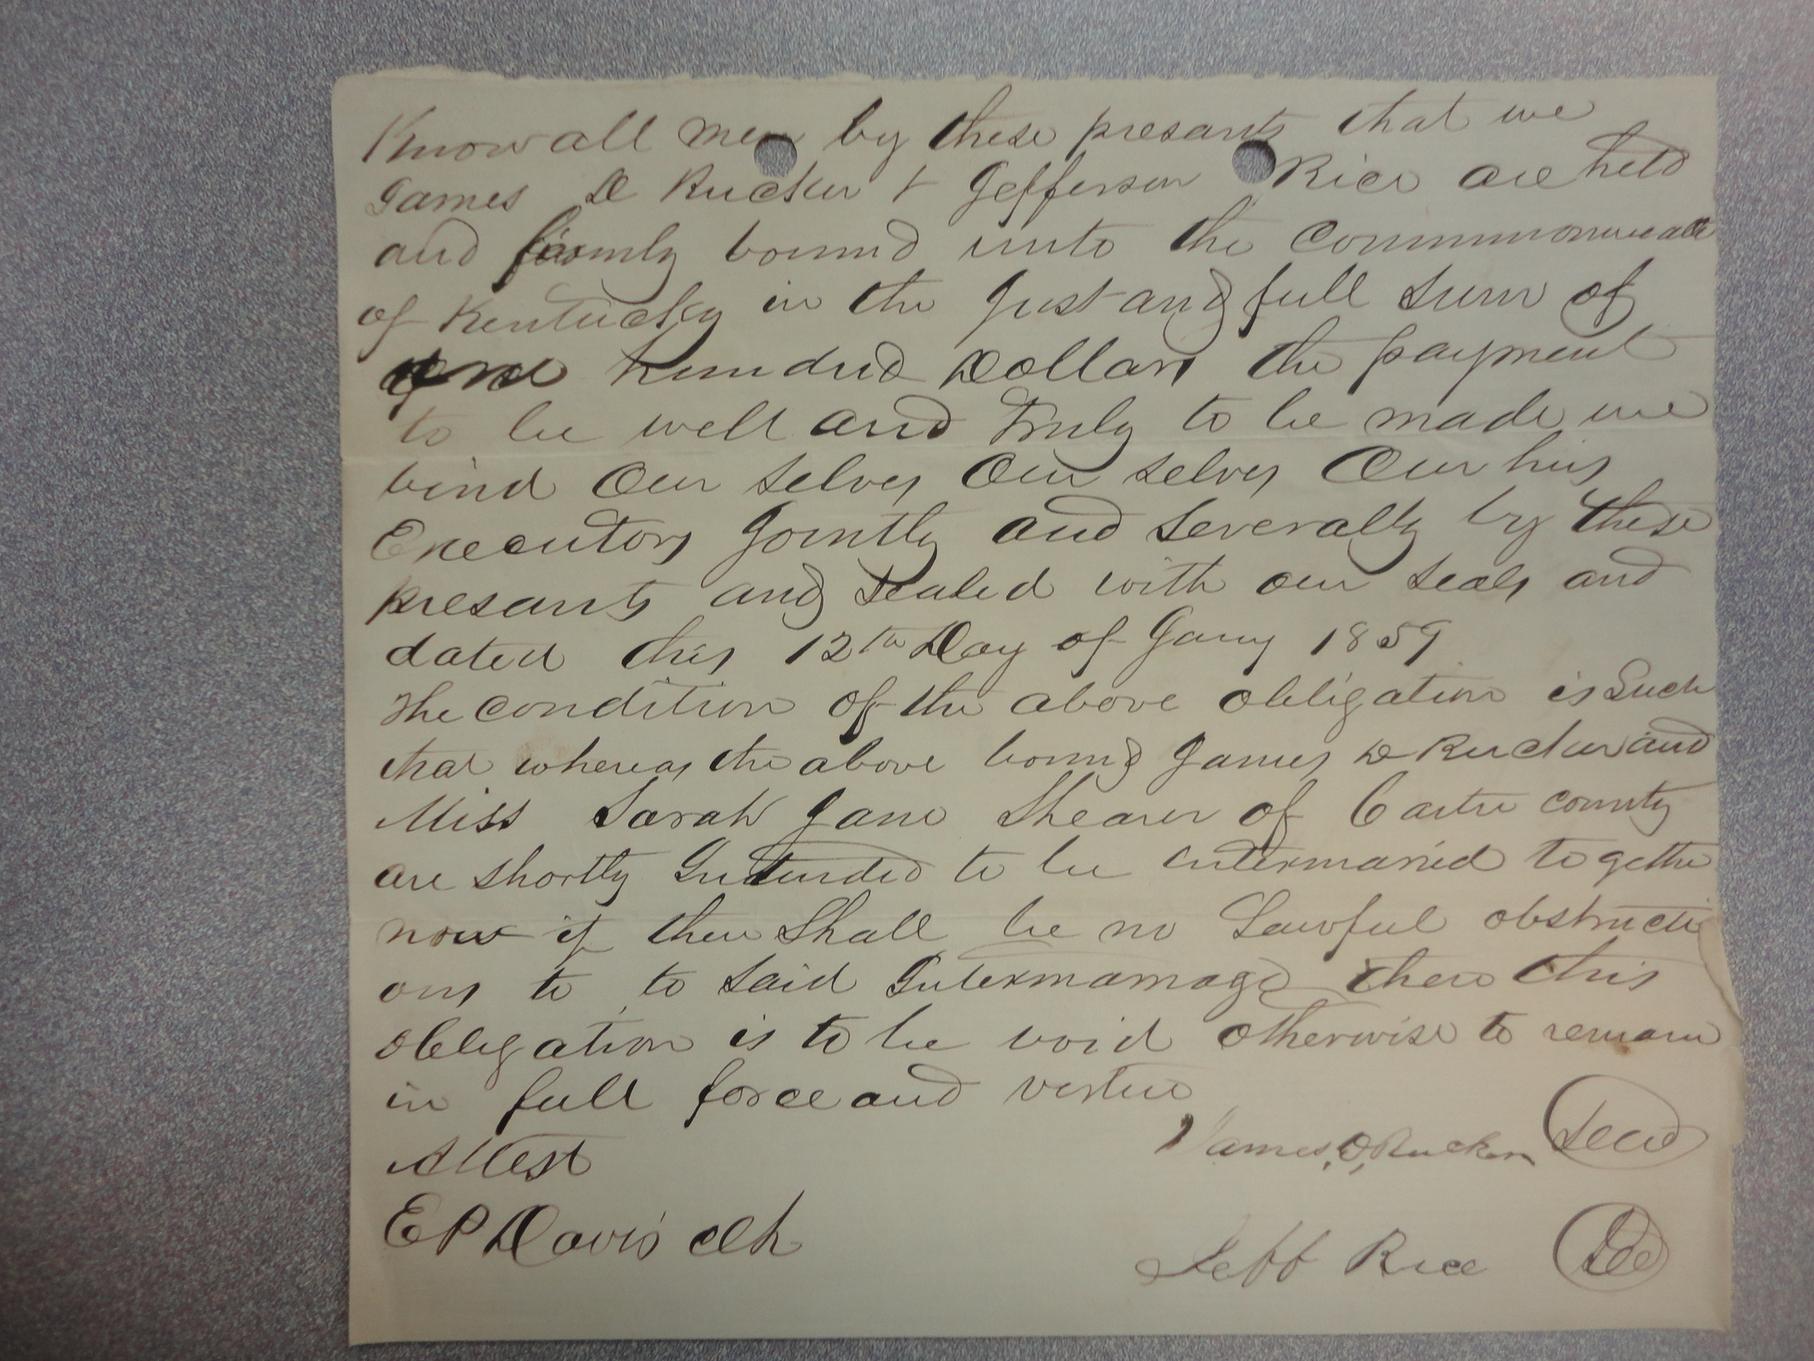 Know all men by these presants that we
James D Rucker & Jefferson Rice are held
and firmly bound unto the Commonwealth
of Kentucky in the Just and full sum of
one hundred Dollars the payment
to be well and Truly to be made we
bind Our selves Our selves Our hirs
Executors Jointly and Severally by these
presants and Sealed with our seals and
dated this 12th Day of Jany 1859
The condition of the above obligation is Such
that whereas the above bound James D Rucker and
Miss Sarah Jane Shearer of Carter county
are shortly Intended to be intermaried together
now if there Shall be no Lawful obstructi
ons to to said Intermarriage then this
obligation is to be void otherwise to remain
in full force and vertue
James, D, Rucker Seal
Attest
E P Davis clk
Jeff Rice